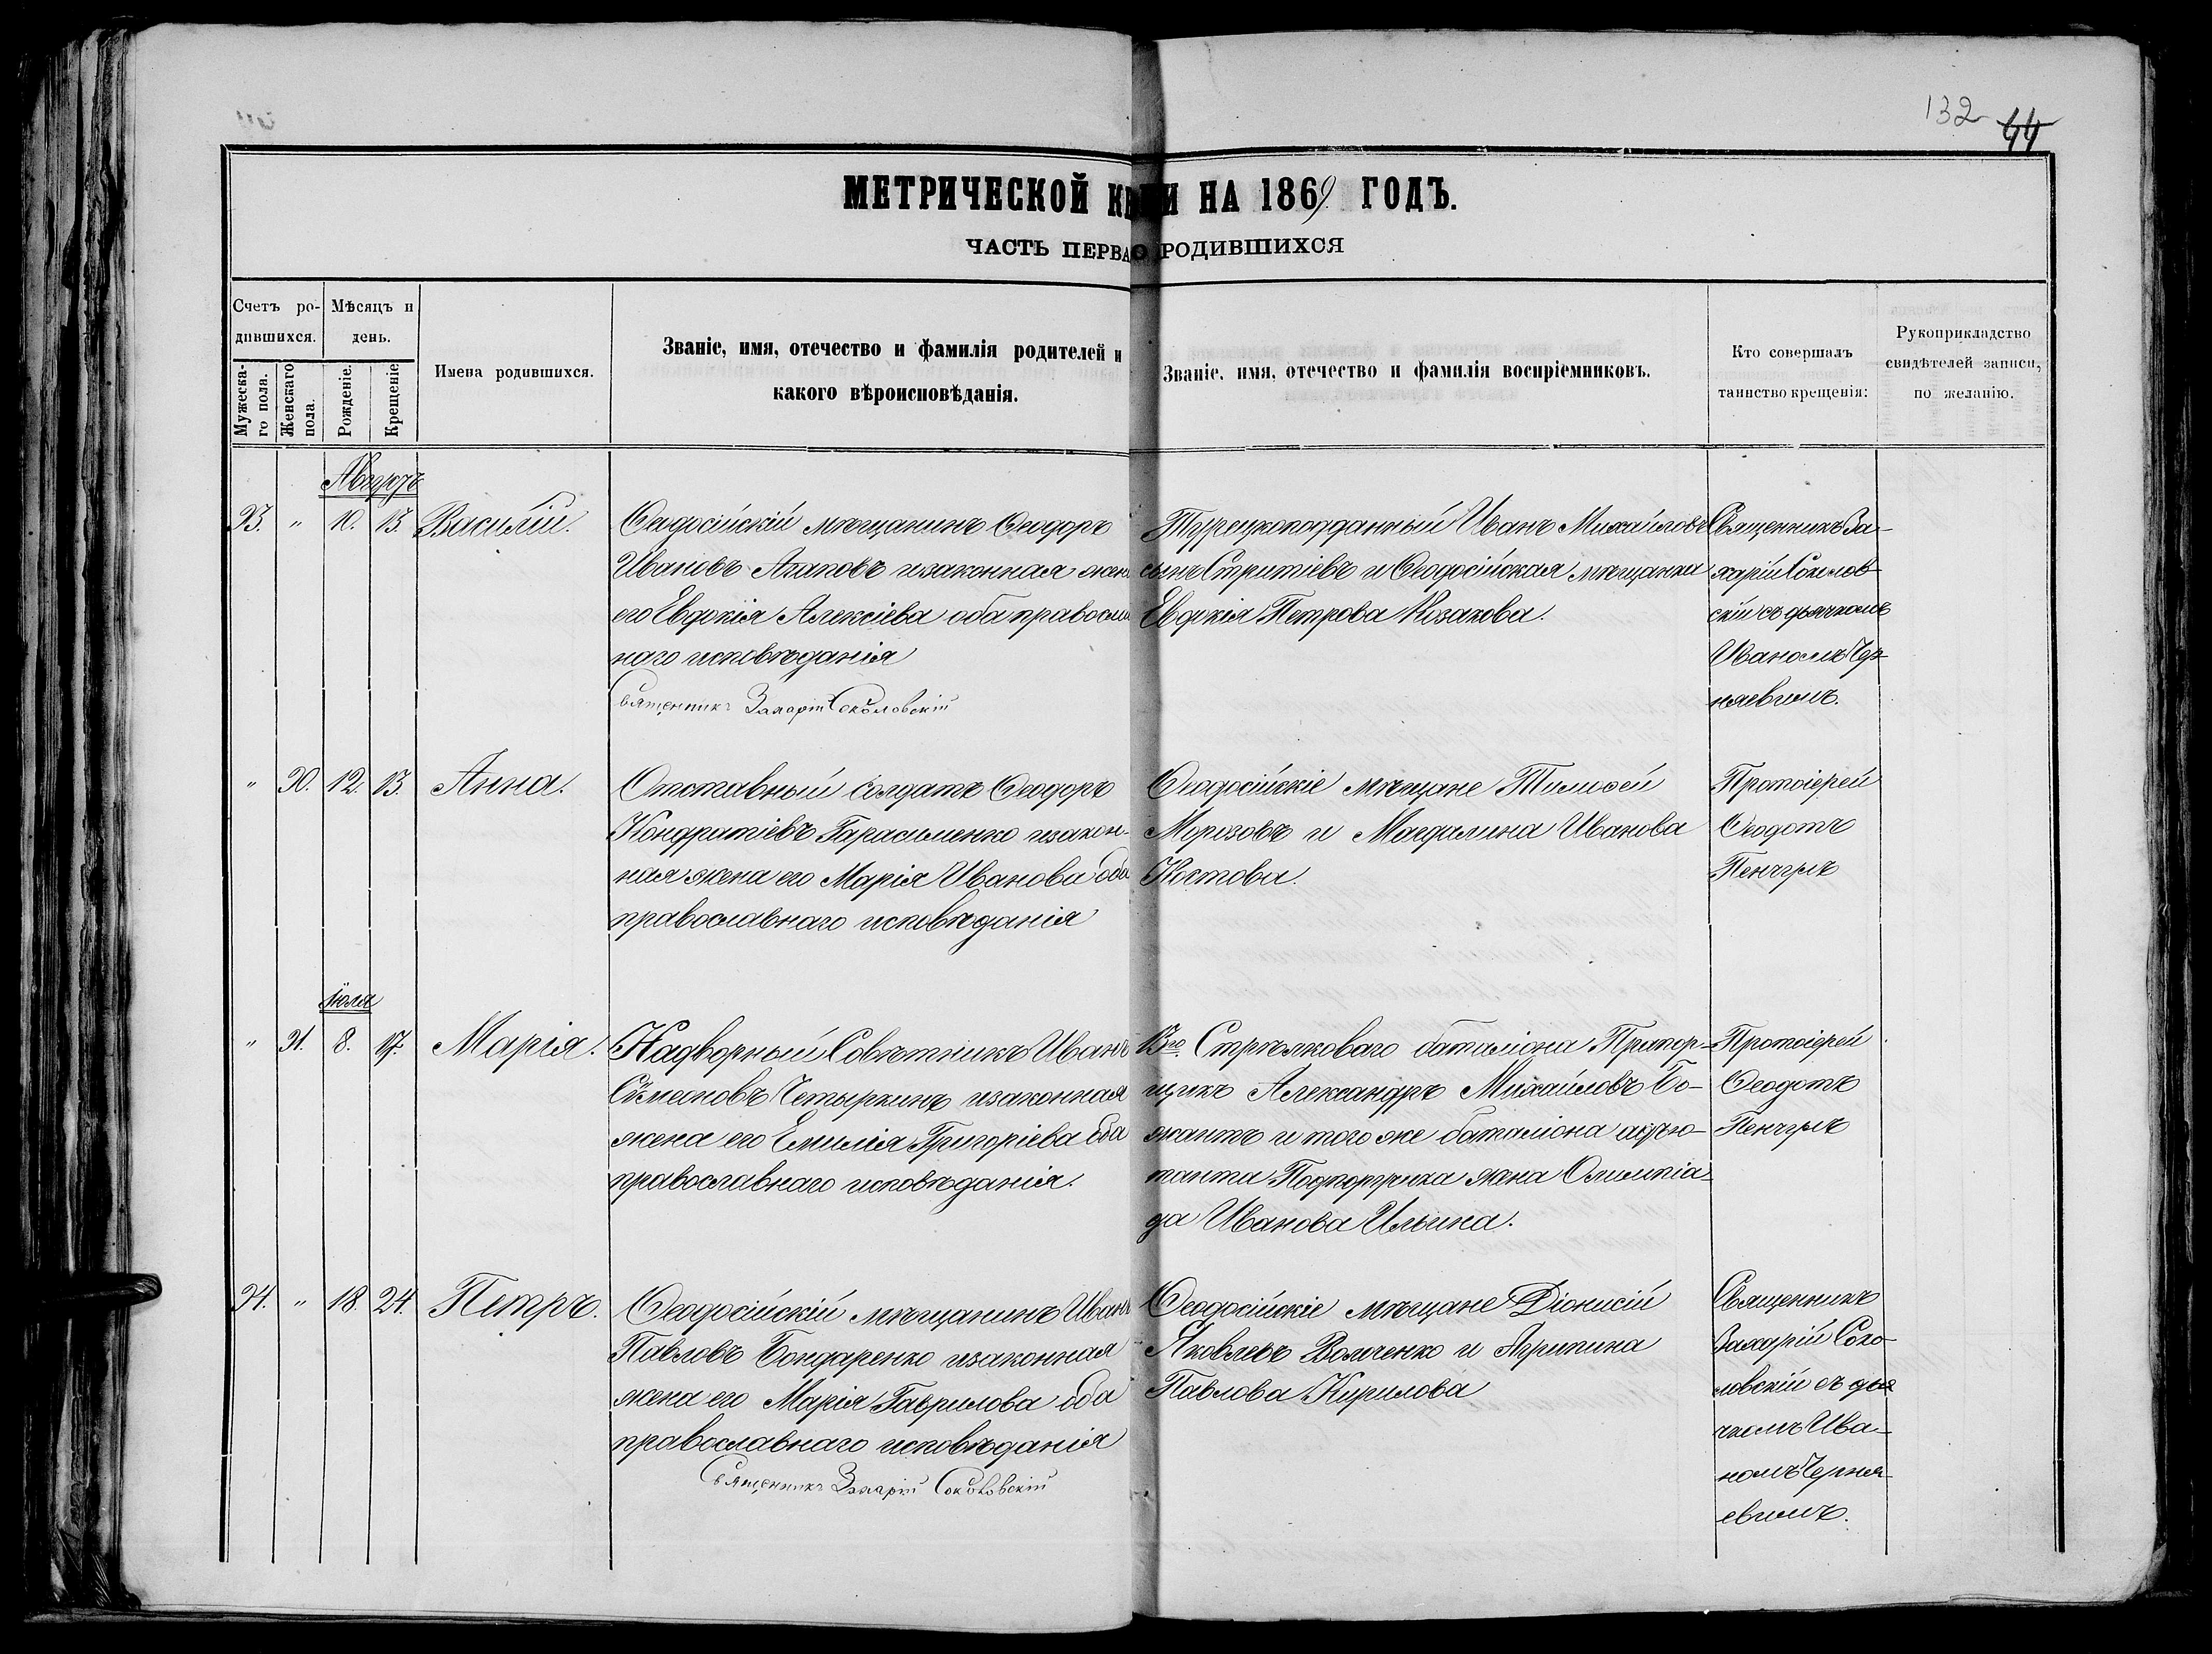 132 44
МЕТРИЧЕСКОЙ КНИ НА 1869 ГОДЪ.
ЧАСТЬ ПЕРВАЯ О РОДИВШИХСЯ
Счетъ ро-
дившихся.
Мужеска-
го пола.
Женскаго
пола.
Мѣсяцъ и
день.
Рожденіе.
Крещеніе
Имена родившихся.
Званіе, имя, отечество и фамилія родителей и
какого вѣроисповѣданія.
Званіе, имя, отечество и фамилія воспріемниковъ.
Кто совершалъ
таинство крещенія:
Рукоприкладство
свидѣтелей записи,
по желанію.
Августъ
93. " 10. 13. Василій.
Ѳеодосійскій мѣщанинъ Ѳеодоръ
Ивановъ Агаповъ и законная жена
его Евдокія Алексіева оба православ
наго исповѣданія
Священникъ Захарій Соколовскій
Турецкоподданный Иванъ Михайловъ
сынъ Стратіевъ и Ѳеодосійская мѣщанка
Евдокія Петрова Козакова.
Священникъ За-
харій Соколов-
скій съ дьячкомъ
Иваномъ Чер-
няевымъ.
" 90. 12. 13. Анна.
Отставный солдатъ Ѳеодоръ
Кондратіевъ Гарасименко и закон-
ная жена его Марія Иванова оба
православнаго исповѣданія
Ѳеодосійскіе мѣщане Тимоѳей
Морозовъ и Магдалина Иванова
Костова.
Протоіерей
Ѳеодотъ
Пенчулъ
Іюля
" 91. 8. 17. Марія.
Надворный Совѣтникъ Иванъ
Сѵмеоновъ Четыркинъ и законная
жена его Емилія Григоріева оба
православнаго исповѣданія.
13го Стрѣлковаго баталіона Прапор-
щикъ Александръ Михайловъ Бо-
жантъ и того же баталіона адъю-
танта Подпоручика жена Олимпіа-
да Иванова Ильина.
Протоіерей
Ѳеодотъ
Пенчулъ
94. " 18. 24. Петръ.
Ѳеодосійскій мѣщанинъ Иванъ
Павловъ Бондаренко и законная
жена его Марія Гаврилова оба
православнаго исповѣданія
Священникъ Захарій Соколовскій
Ѳеодосійскіе мѣщане Діонисій
Яковлевъ Волченко и Агрипина
Павлова Кирилова
Священникъ
Захарій Соко-
ловскій съ дья
чкомъ Ива-
номъ Черня-
евымъ.